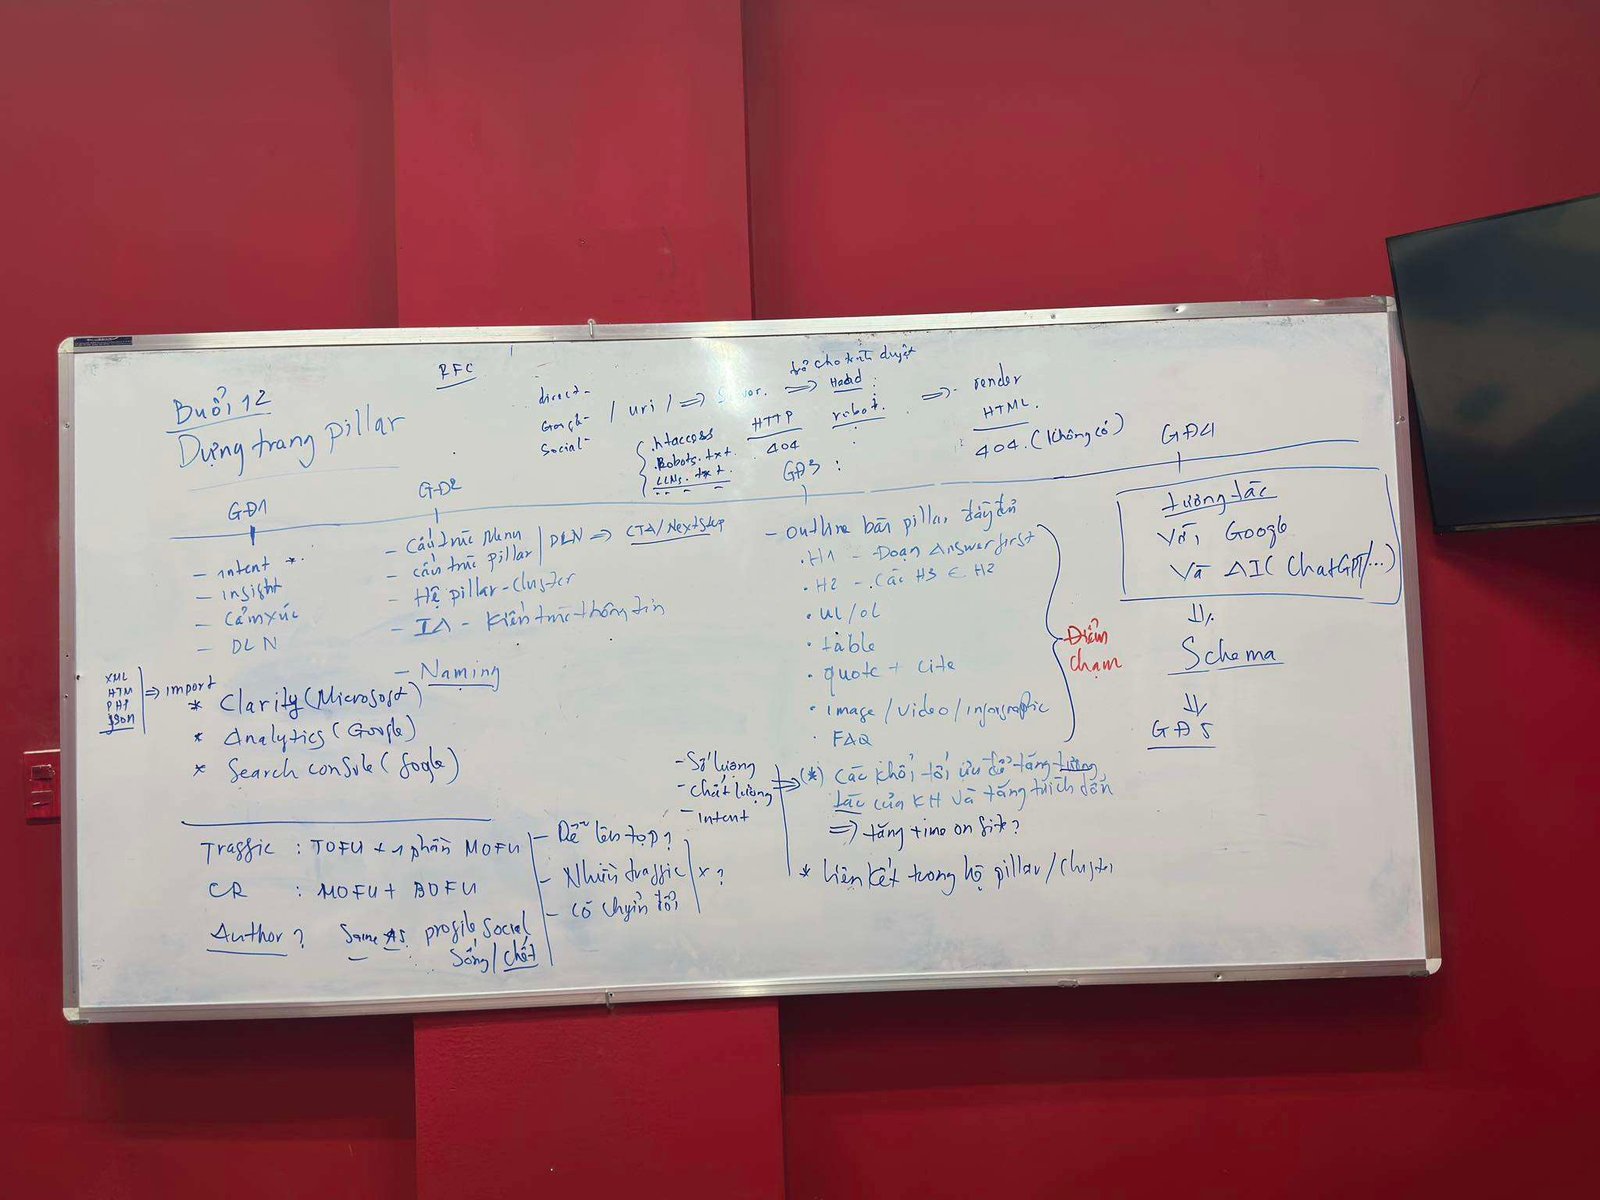 Buổi 12
Dựng trang pillar
RFC
direct -
Google -
Social -
/ uri / =>
trả cho trình duyệt
=> Head :
=> render
HTML.
404. (không có)
.htaccess
.Robots.txt.
LLMs.txt.
HTTP
404
robot.
GĐ1
- intent *
- insight
- Cảm xúc
- DLN
GĐ2
- Cấu trúc Menu
- cấu trúc pillar
DLN => CTA/Nextstep
- Hệ pillar-cluster
- IA - Kiến trúc thông tin
- Naming
GĐ3 :
- outline bản pillar đầy đủ
. H1 - Đoạn Answer first
. H2 - Các H3 ∈ H2
. ul/ol
. table
. quote + cite
. image / video / infographic
. FAQ
Điểm
chạm
GĐ4
tương tác
Với Google
Và AI( ChatGPT/...)
Schema
GĐ5
XML
HTM
PHP
JSON
=> import
* Clarity (Microsoft)
* Analytics (Google)
* Search console (Google)
Traffic : TOFU + 1 phần MOFU
CR : MOFU + BOFU
Author ? Same As. profile social
Sống/chết
- Dễ lên top ?
- Nhiều traffic
- Có chuyển đổi
x ?
- Số lượng
- Chất lượng
- Intent
=> (*) Các khối tối ưu để tăng tương
tác của KH và tăng trích dẫn
=> tăng time on site ?
* Liên kết trong hệ pillar/cluster